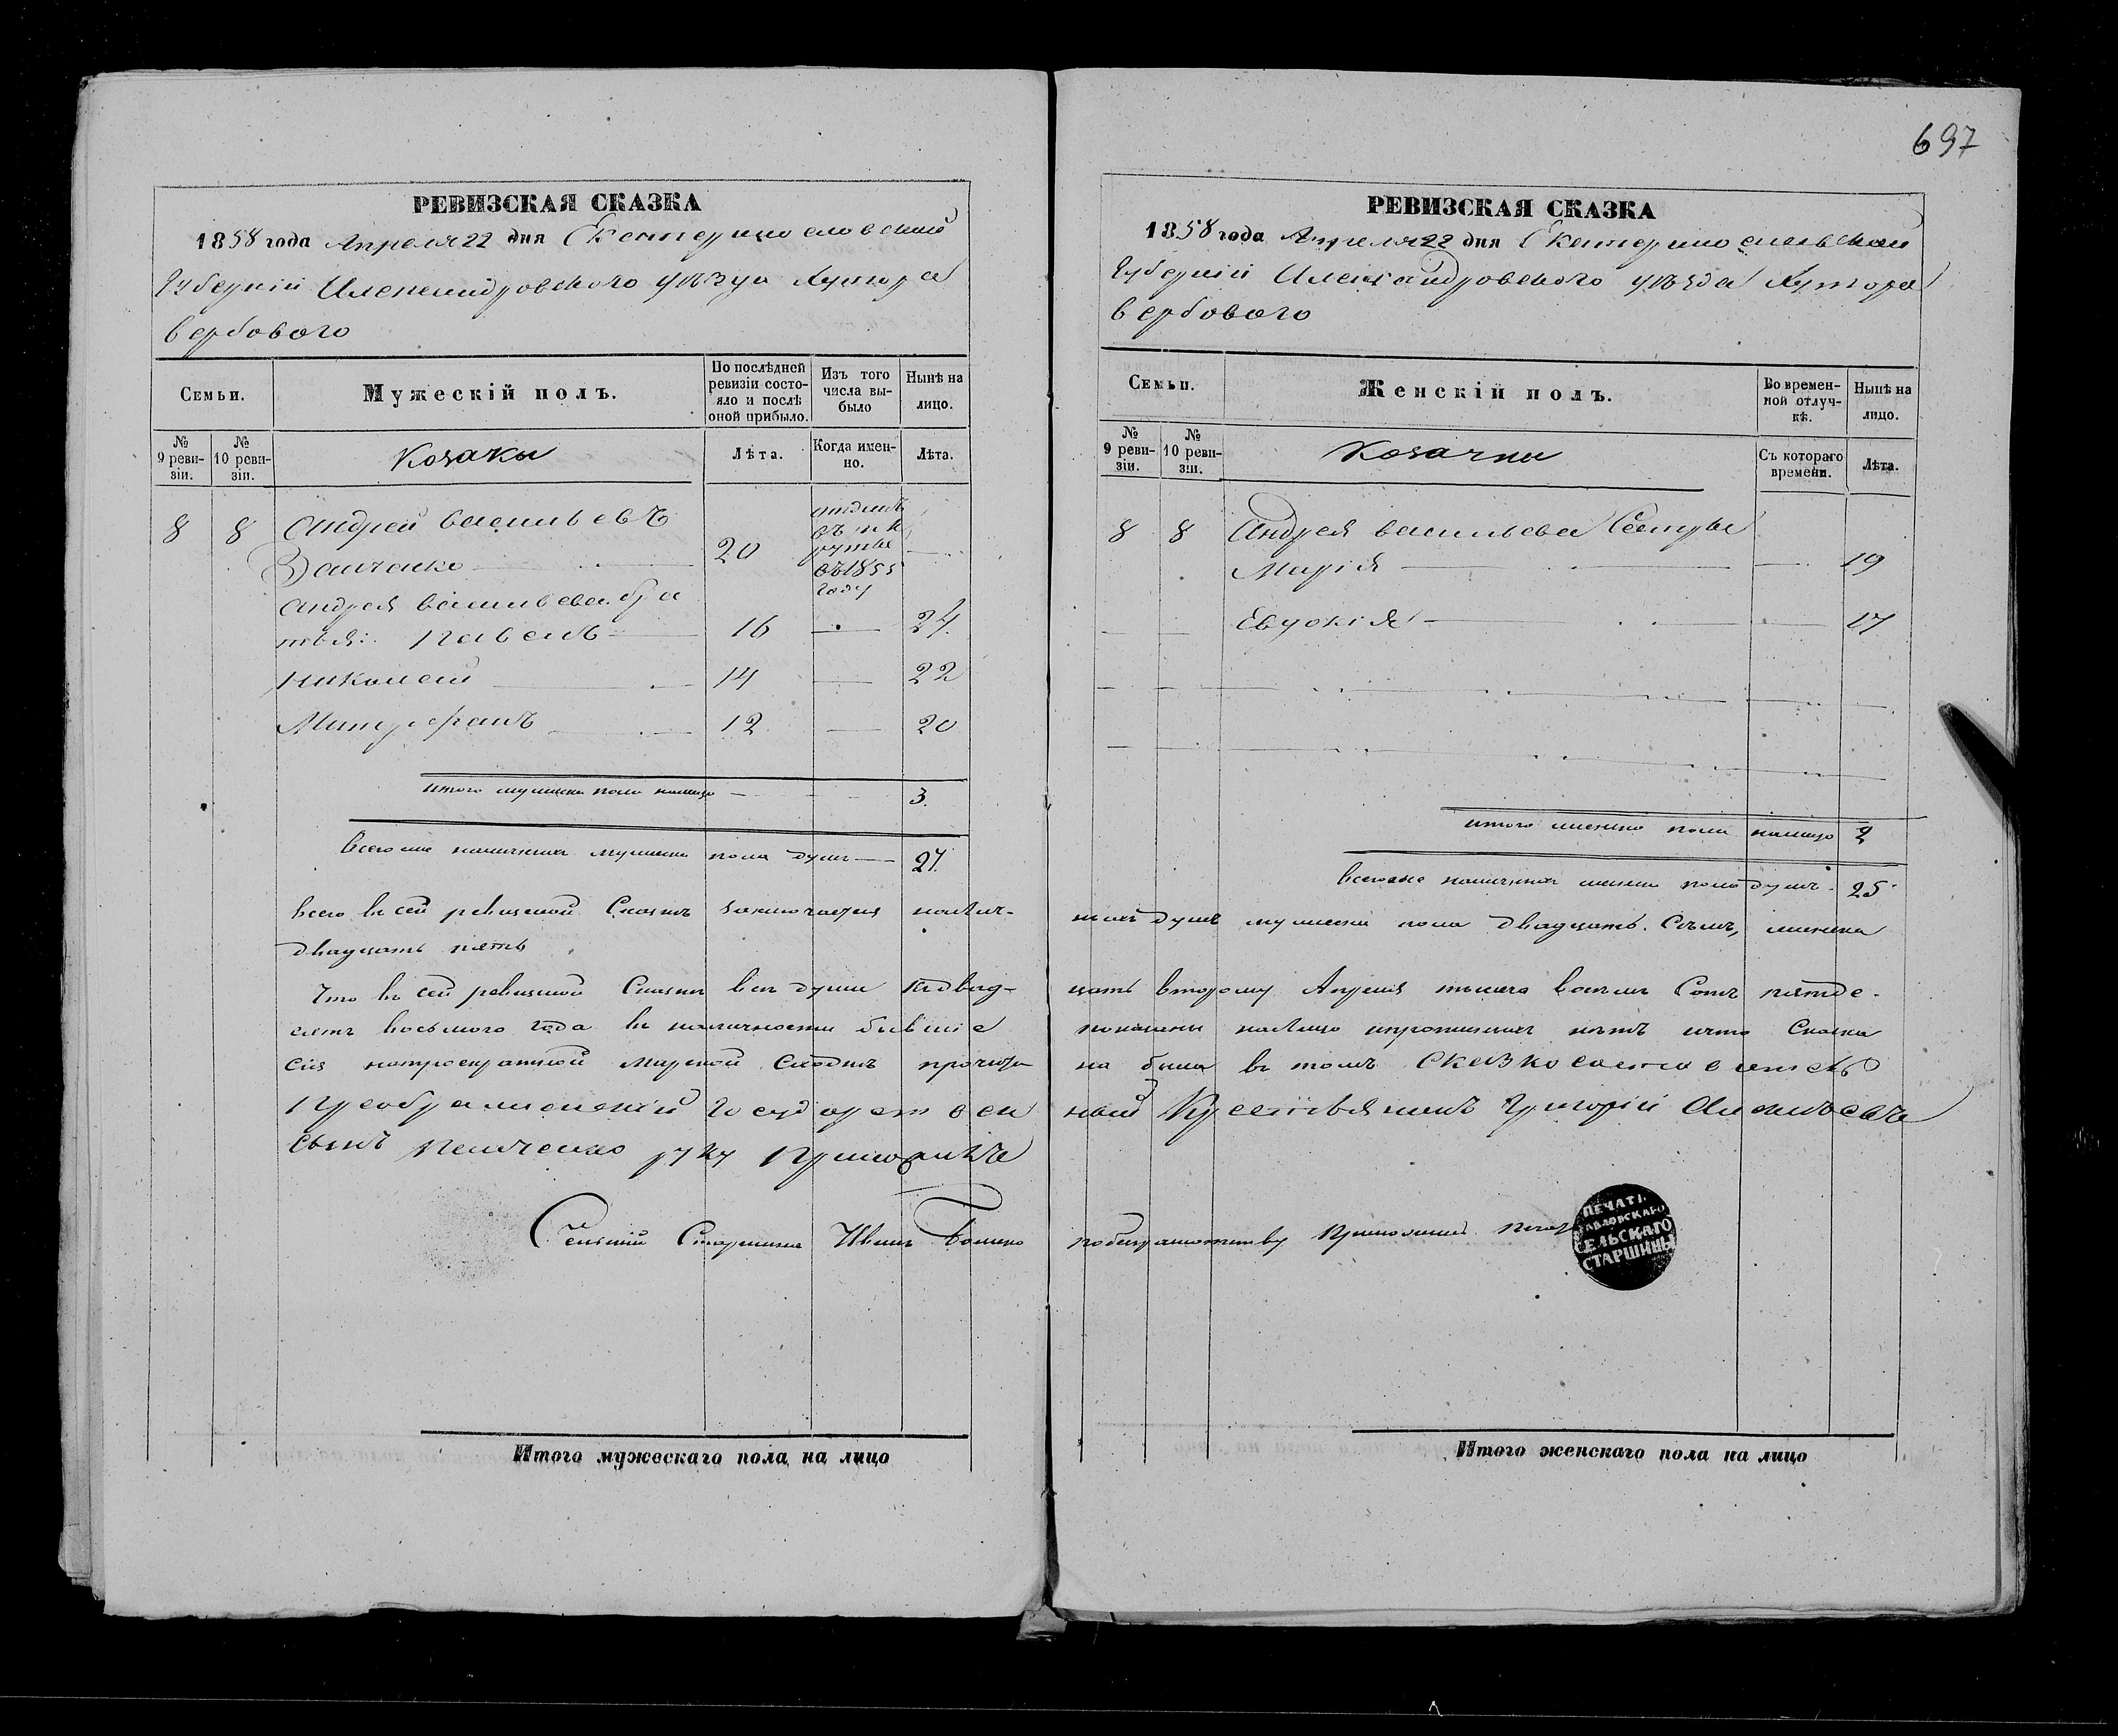 697
РЕВИЗСКАЯ СКАЗКА
1858 года Апреля 22 дня Екатеринославской
Губерніи Александровского уѣзда Хутора
Вербового
Семьи.
Мужескій полъ.
По послѣдней ревизіи состояло и послѣ оной прибыло.
Изъ того числа выбыло
Нынѣ на лицо.
№ 9 ревизіи.
№ 10 ревизіи.
Козаки
Лѣта.
Когда именно.
Лѣта.
8 8 Андрей Васильевъ
20 въ 1855 году
Андрея Васильева бра
тья: Павелъ 16 — 24
Николай 14 — 22
Митрофанъ 12 — 20
Итого мужеска пола налицо — 3.
Всего же наличныхъ мужеска пола душъ — 27.
Всего въ сей ревизской Сказкѣ заключается налич-
двадцать пять
Что въ сей ревизской Сказкѣ всѣ души къ двад-
сятъ восьмого года въ наличности бывшіе
сія мирской Сходкѣ прочита
Государствен
сынъ руку Приложилъ
Сельскій Старшина Иванъ
Итого мужескаго пола на лицо
РЕВИЗСКАЯ СКАЗКА
1858 года Апреля 22 дня Екатеринославской
Губерніи Александровского уѣзда Хутора
Вербового
Семьи.
Женскій полъ.
Во временной отлучкѣ.
Нынѣ на лицо.
№ 9 ревизіи.
№ 10 ревизіи.
Козачки
Съ котораго времени.
Лѣта.
8 8 Андрея Васильева Сестры
Марія — 19
Евдокія — 17
Итого женска пола налицо 2
Всего же наличныхъ женска пола душъ 25
ныхъ душъ мужеска пола двадцать Семь, женска
цать второму Апреля тысяча восемь Сотъ пятьде-
показаны налицо и пропущенныхъ нѣтъ и что Сказка
на была въ томъ Сказкосоставитель
ный Крестьянинъ Григорій
Приложилъ
ПЕЧАТЬ
СЕЛЬСКАГО
СТАРШИНЫ
Итого женскаго пола на лицо